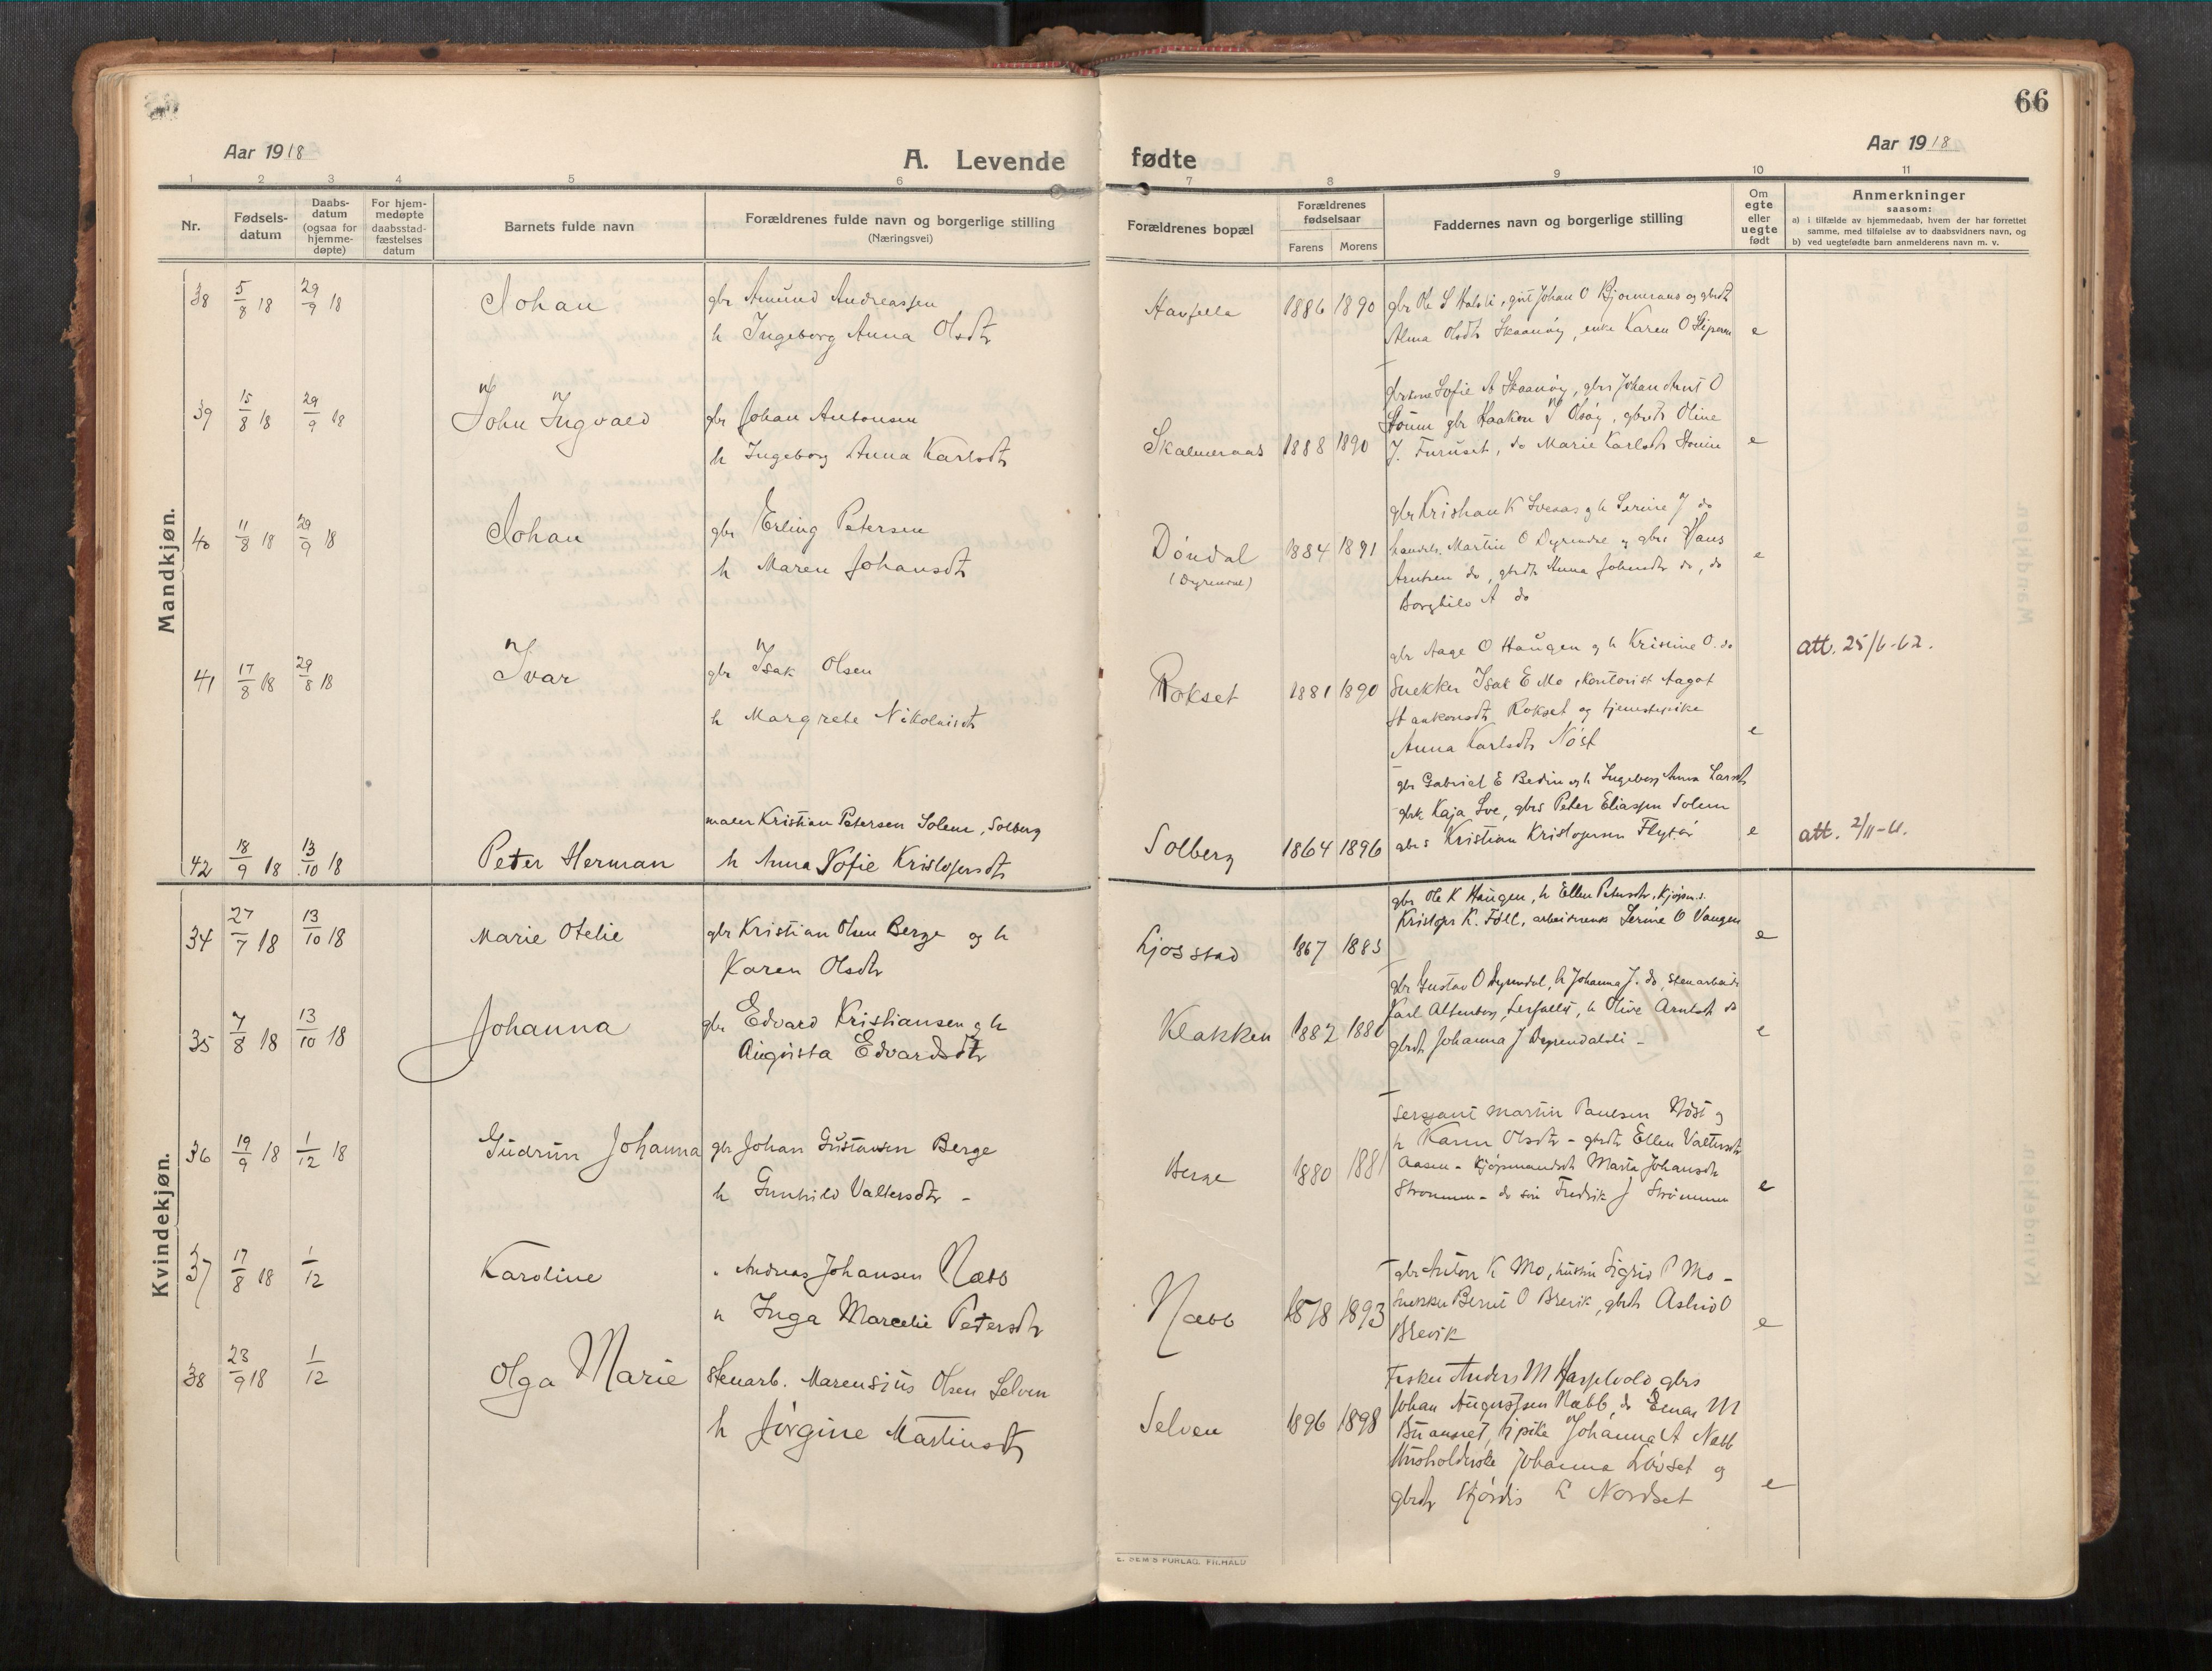 66
Aar 1918
A. Levende fødte
Aar 1918
1 2 3 4 5 6 7 8 9 10 11
Nr.
Fødsels-
datum
Daabs-
datum
(ogsaa for
hjemme-
døpte)
For hjem-
medøpte
daabsstad-
fæstelses
datum
Barnets fulde navn
Forældrenes fulde navn og borgerlige stilling
(Næringsvei)
Forældrenes bopæl
Forældrenes
fødselsaar
Farens Morens
Faddernes navn og borgerlige stilling
Om
egte
eller
uegte
født
Anmerkninger
saasom:
a) i tilfælde av hjemmedaab, hvem der har forrettet
samme, med tilføielse av to daabsvidners navn, og
b) ved uegtefødte barn anmelderens navn m. v.
Mandkjøn.
38 5/8 18 29/9 18 Johan
gbr Amund Andreassen
h Ingeborg Anna Olsdtr
1886 1890
gbr Ole S, Johan O og gbrdt
Alma Olsdtr Skaanøy, enke Karen O
e
39 15/8 18 29/9 18 John Ingvald
gbr Johan Antonsen
h Ingeborg Anna Karlsdtr
Skalmeraas 1888 1890
Sofie A Skaanøy, gbrs Johan Arnt O
gbr Haakon, gbrdtr Oline
J. Furuset, do Marie Karlsdtr
e
40 11/8 18 29/9 18 Johan
gbr Erling Petersen
h Maren Johansdtr
Døndal 1884 1891
(Dyrendal)
gbr Kristian K Sveaas og h Serine J do
handels. Martin O Dyrendal og gbrs Hans
Arntsen do, gbrdtr Anna do, do
Borghild A do
e
41 17/8 18 29/8 18 Ivar
gbr Isak Olsen
h Margrete Nikolaisdtr
Rokset 1881 1890
gbr Aage O Haugen og h Kristine O. do
Snekker Isak E Mo, kontorist Aagot
Haakonsdtr Rokset og tjenestepike
Anna Karlsdtr Nøst
e
att. 25/6-62.
42 18/9 18 13/10 18 Peter Herman
maler Kristian Petersen Solem, Solberg
h Anna Sofie Kristofersdtr
Solberg 1864 1896
gbr Gabriel E og h Ingeborg Anna Larsdtr
Kaja Sve, gbrs Peter Eliassen Solem
gbrs Kristian Kristofersen
e
att. 2/11-61.
Kvindekjøn.
34 27/7 18 13/10 18 Marie Otelie
gbr Kristian Olsen Berge og h
Karen Olsdtr
Ljosstad 1867 1885
gbr Ole K Haugen, h Ellen Petersdtr, kjøpm.s.
Kristofer K. Foll, Serine O Vaagen
e
35 7/8 18 13/10 18 Johanna
gbr Edvard Kristiansen og h
Augusta Edvardsdtr
Klakken 1882 1880
gbr Gustav O Dyrendal, h Johanna J. do, stenarbeider
Karl Altenborg, h Olive Arntsdt do
gbrdt Johanna J Dyrendalsli -
e
36 19/9 18 1/12 18 Gudrun Johanna
gbr Johan Gustavsen Berge
h Gunhild Valtersdtr -
Berge 1880 1881
Sersjant Martin Paulsen Nøst og
h Karen Olsdtr - gbrdtr Ellen Valtersdtr
Aasen - kjøpmandsdt Marta Johansdtr
Strømmen - do søn Fredrik J Strømmen
e
37 17/8 18 1/12 Karoline
" Andreas Johansen Næbb
" Inga Marcelie Petersdtr
Næbb 1878 1893
gbr Anton K Mo, hustru Sigrid P Mo -
Snekker Bernt O Brevik, gbrdt Astrid O
Brevik
e
38 23/9 18 1/12 Olga Marie
Stenarb. Marensius Olsen Selven
h Jørgine Martinsdtr
Selven 1896 1898
Fisker Anders M gbrs
Johan Augustsen Næbb, do Einar M
tj pike Johanna A Næbb
Husholderske Johanna Løvset og
gbrdtr Hjørdis L Nordset
e
E. SEM'S FORLAG, FR.HALD